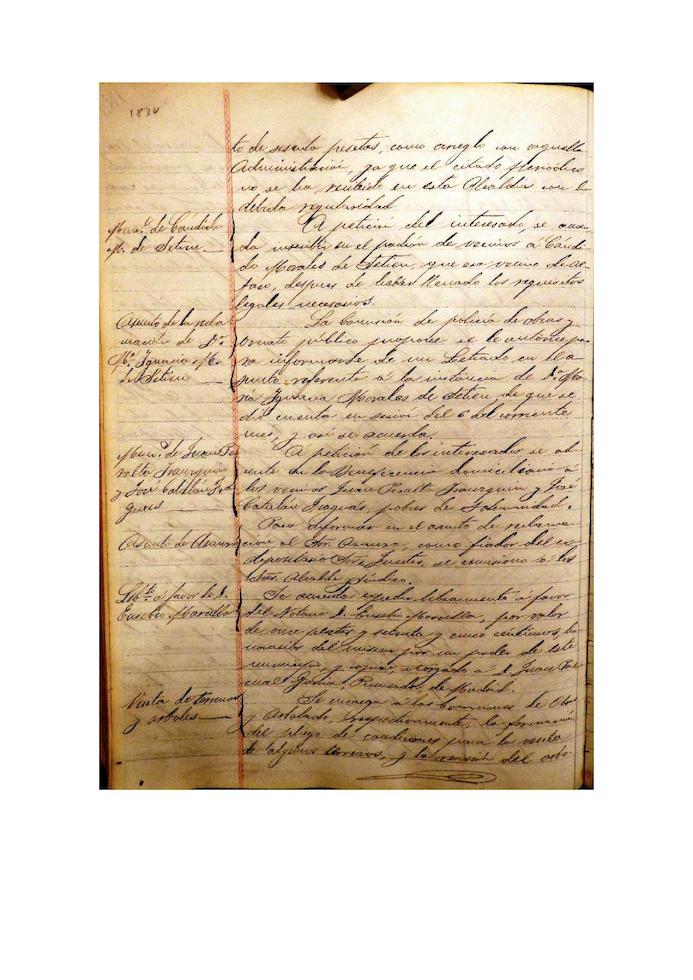 1834
to de sesenta pesetas, como arreglo con aquella
Administración, ya que el citado periódico
no se ha recibido en esta Alcaldía con la
debida regularidad.
de Candido
M. de Setien
A petición del interesado, se acuer-
da inscribir en el padrón de vecinos á Cándi-
do Morales de Setien, que era vecino de Al-
faro, despues de haber llenado los requisitos
legales necesarios.
Asunto de la recla
mación de D.ª
M.ª Ignacia M.
de Setien
La Comisión de policía de obras y
ornato público propone se le autorice pa-
ra informarse de un Letrado en el a-
sunto referente á la instancia de D.ª Ma-
ría Ignacia Morales de Setien de que se
dió cuenta en sesión del 6 del corriente
mes, y así se acuerda.
de Juan Pe
ralta
y José Catalán
A petición de los interesados se ad-
mite en la Beneficencia domiciliaria á
los vecinos Juan Peralta y José
Catalán, pobres de solemnidad.
Asunto de
Para informar en el asunto de reclama-
ción al Sor. como fiador del ex-
depositario Sor. Fuertes, se comisiona á los
Sres. Alcalde y Síndico.
Lib.to á favor de D.
Eusebio
Se acuerda expedir libramiento á favor
del Notario D. Eusebio por valor
de once pesetas y setenta y cinco centimos, ho-
norarios del mismo por un poder de este
municipio, y copia, otorgado á D. Juan Pas-
cual García, Procurador, de Madrid.
Venta de terrenos
y arboles
Se encarga á las Comisiones de Obras
y Arbolado, respectivamente, la formación
del pliego de condiciones para la venta
de algunos terrenos, y la revisión del arbo-